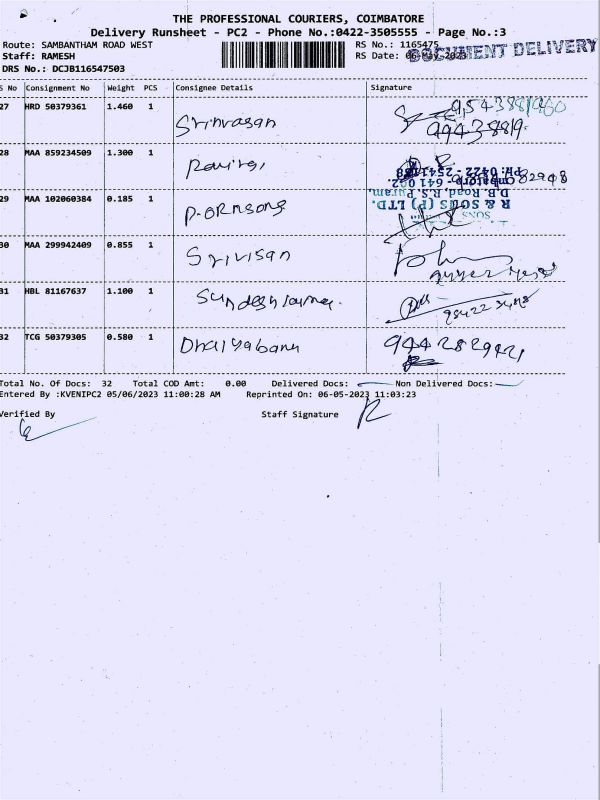 THE PROFESSIONAL COURIERS, COIMBATORE
Delivery Runsheet - PC2 - Phone No.:0422-3505555 - Page No.:3
Route: SAMBANTHAM ROAD WEST
RS No.: 1165475
DOCUMENT DELIVERY
Staff: RAMESH
RS Date: 06-May-2023
DRS No.: DCJB116547503
S No Consignment No Weight PCS Consignee Details Signature
27 HRD 50379361 1.460 1 Srinvasan
9543881960
99438819
28 MAA 859234509 1.300 1
PH: 0422 - 2541188
641 002
D.B. Road, R.S. Puram,
R & SONS (P) LTD.
SONS
29 MAA 102060384 0.185 1 P. ORNSONS
30 MAA 299942409 0.855 1 Srivisan
31 HBL 81167637 1.100 1
32 TCG 50379305 0.580 1 Dhaiyabanu
9442829421
Total No. Of Docs: 32 Total COD Amt: 0.00 Delivered Docs: Non Delivered Docs:
Entered By :KVENIPC2 05/06/2023 11:00:28 AM Reprinted On: 06-05-2023 11:03:23
Verified By Staff Signature